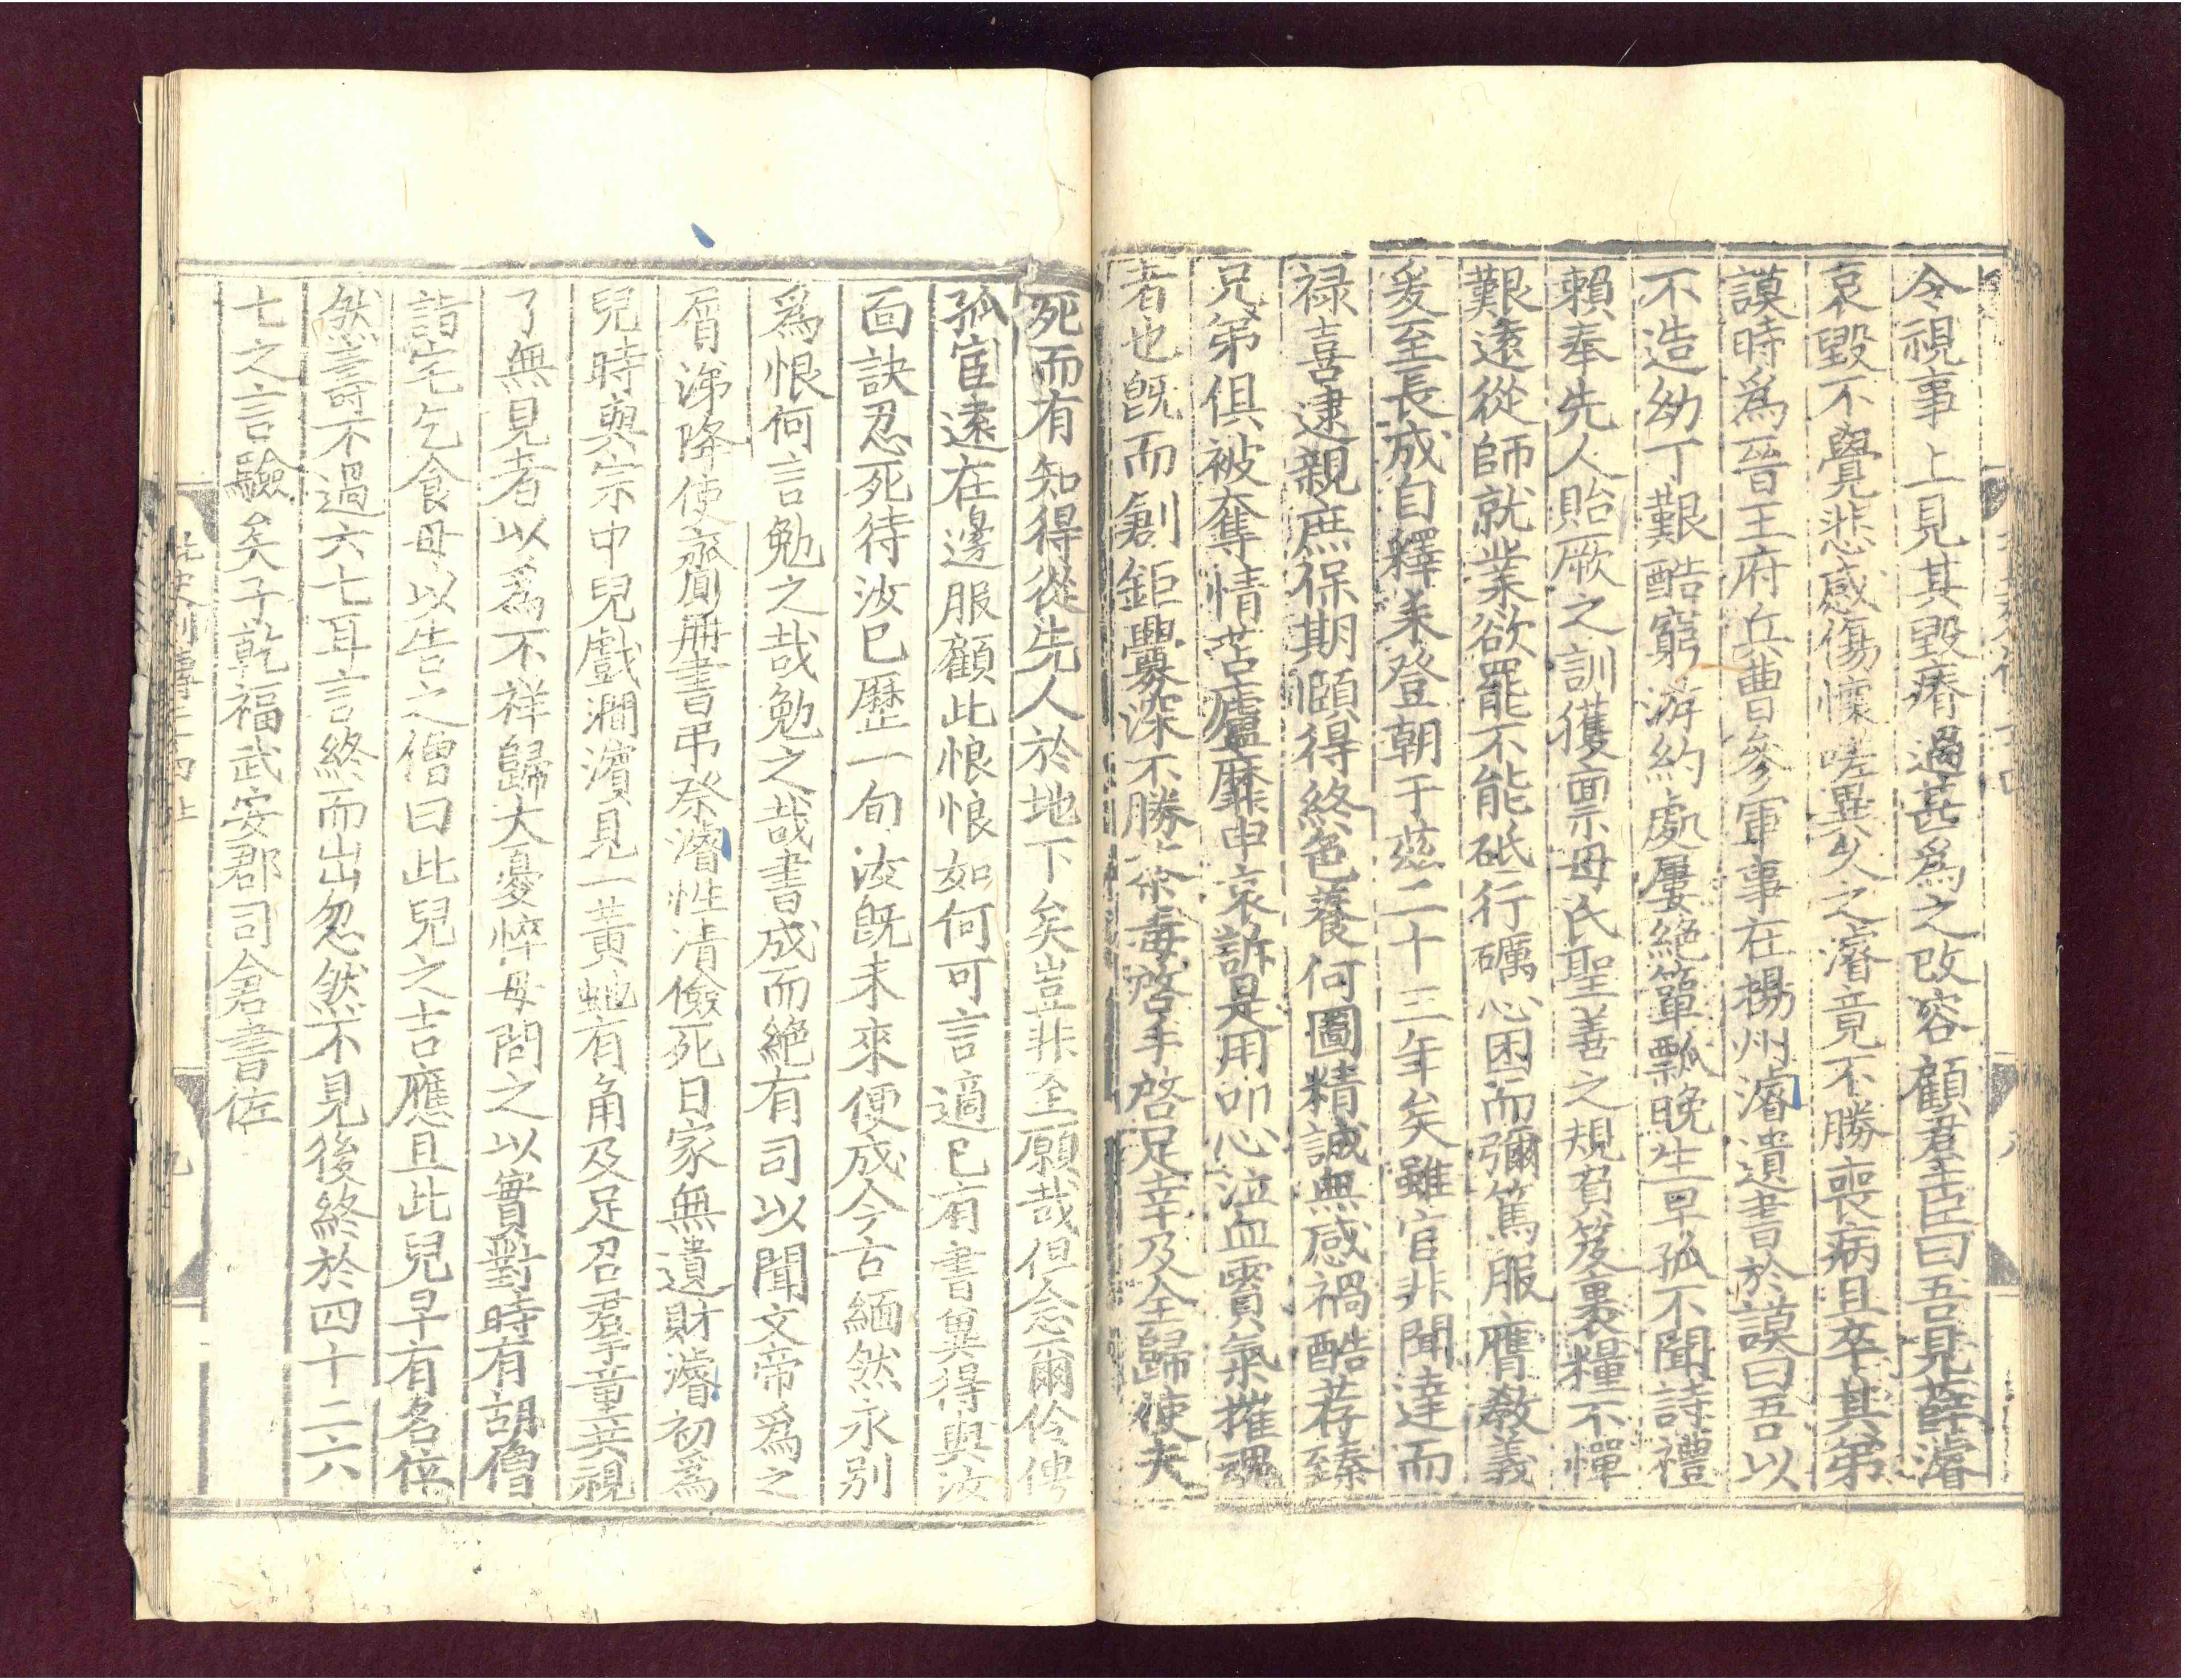 令視事上見其毀瘠過甚爲之改容顧群臣曰吾見薛濬
哀毀不覺悲感傷懷嗟異久之濬竟不勝喪病且卒其弟
謨時爲晉王府兵曹參軍事在揚州濬遺書於謨曰吾以
不造幼丁艱酷窮游約處屢絶簞瓢晚生早孤不聞詩禮
賴奉先人貽厥之訓獲稟母氏聖善之規負笈裹糧不憚
艱遠從師就業欲罷不能砥行礪心困而彌篤服膺教義
爰至長成自釋耒登朝于茲二十三年矣雖官非聞達而
禄喜逮親庶保期頤得終色養何圖精誠無感禍酷荐臻
兄弟俱被奪情苫廬靡申哀訴是用叩心泣血霣氣摧魂
者也旣而創鉅釁深不勝荼毒啓手啓足幸及全歸使夫
死而有知得從先人於地下矣豈非至願哉但念爾伶俜
孤宦遠在邊服顧此恨恨如何可言適已有書冀得與汝
面訣忍死待汝已歷一旬汝旣未來便成今古緬然永别
爲恨何言勉之哉勉之哉書成而絶有司以聞文帝爲之
屑涕降使齎册書弔祭濬性清儉死日家無遺財濬初爲
兒時與宗中兒戲澗濵見一黃虵有角及足召羣童共視
了無見者以爲不祥歸大憂悴母問之以實對時有胡僧
詣宅乞食母以告之僧曰此兒之吉應且此兒早有名位
然壽不過六七耳言終而出忽然不見後終於四十二六
七之言驗矣子乾福武安郡司倉書佐